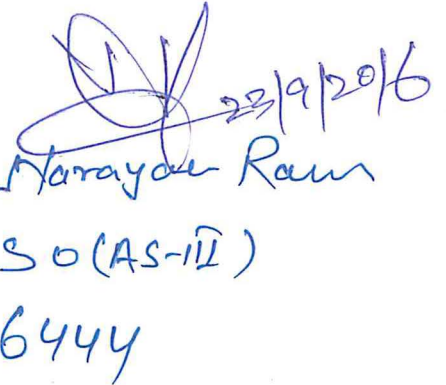 23/9/2016
Narayan Ram
SO (AS-III)
6444